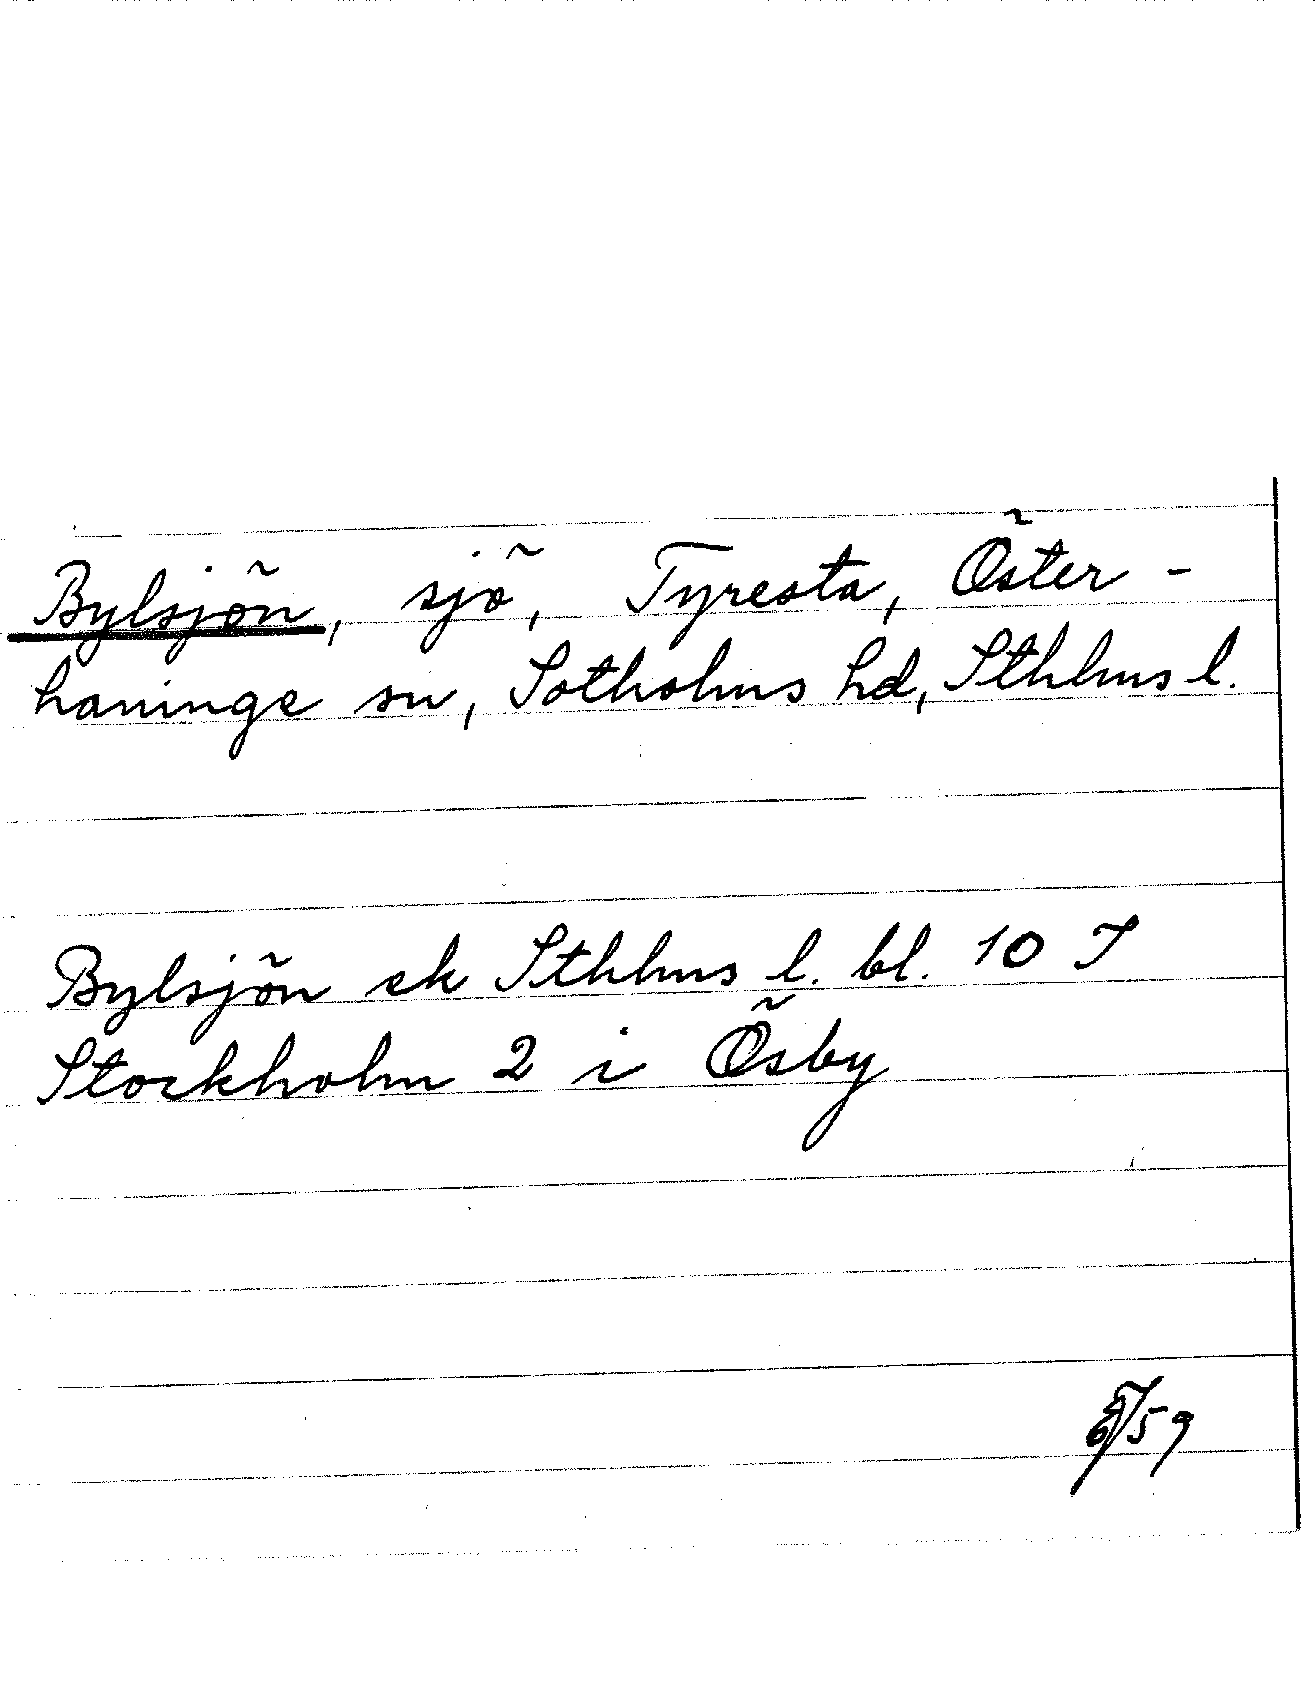 Bylsjön, sjö, Tyresta, Öster-
haninge sn, Sotholms hd, Sthlms l.
Bylsjön ek Sthlms l. bl. 10 I
Stockholm 2 i Ösby
/59